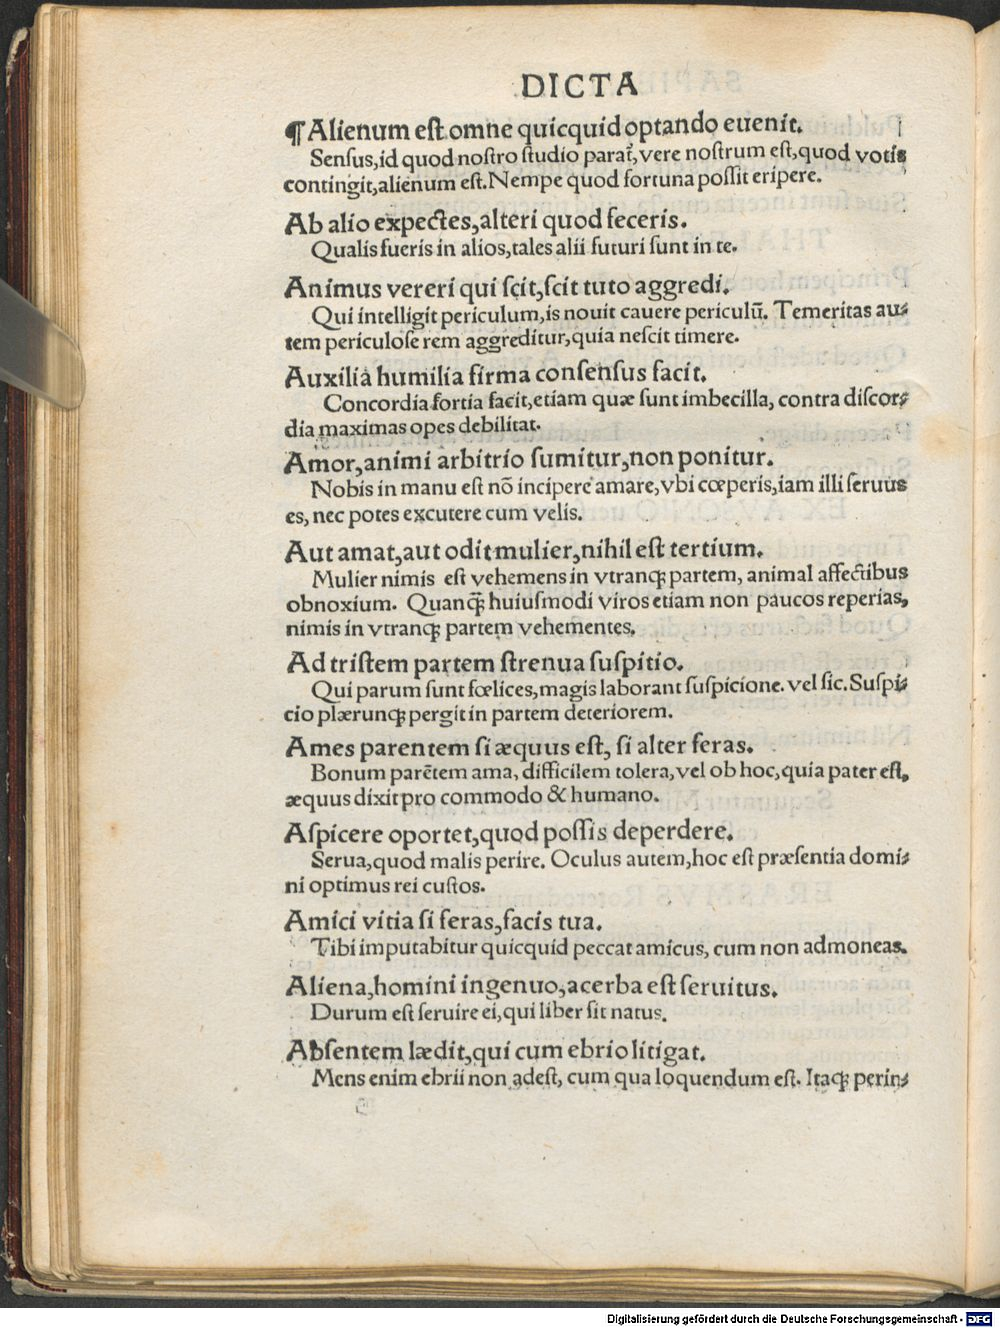 DICTA
¶Alienum est omne quicquid optando euenit.
Sensus, id quod nostro studio parat̃, vere nostrum est, quod votis
contingit, alienum est. Nempe quod fortuna possit eripere.
Ab alio expectes, alteri quod feceris.
Qualis fueris in alios, tales alii futuri sunt in te.
Animus vereri qui scit, scit tuto aggredi.
Qui intelligit periculum, is nouit cauere periculũ. Temeritas au⸗
tem periculose rem aggreditur, quia nescit timere.
Auxilia humilia firma consensus facit.
Concordia fortia facit, etiam quæ sunt imbecilla, contra discor⸗
dia maximas opes debilitat.
Amor, animi arbitrio sumitur, non ponitur.
Nobis in manu est nõ incipere amare, vbi cœperis, iam illi seruus
es, nec potes excutere cum velis.
Aut amat, aut odit mulier, nihil est tertium.
Mulier nimis est vehemens in vtranqꝫ partem, animal affectibus
obnoxium. Quanqꝫ̃ huiusmodi viros etiam non paucos reperias,
nimis in vtranqꝫ partem vehementes.
Ad tristem partem strenua suspitio.
Qui parum sunt fœlices, magis laborant suspicione. vel sic. Suspi⸗
cio plærunqꝫ pergit in partem deteriorem.
Ames parentem si æquus est, si alter feras.
Bonum parẽtem ama, difficilem tolera, vel ob hoc, quia pater est,
æquus dixit pro commodo & humano.
Aspicere oportet, quod possis deperdere.
Serua, quod malis perire. Oculus autem, hoc est præsentia domi⸗
ni optimus rei custos.
Amici vitia si feras, facis tua.
Tibi imputabitur quicquid peccat amicus, cum non admoneas.
Aliena, homini ingenuo, acerba est seruitus.
Durum est seruire ei, qui liber sit natus.
Absentem lædit, qui cum ebrio litigat.
Mens enim ebrii non adest, cum qua loquendum est. Itaqꝫ perin⸗
Digitalisierung gefördert durch die Deutsche Forschungsgemeinschaft - DFG